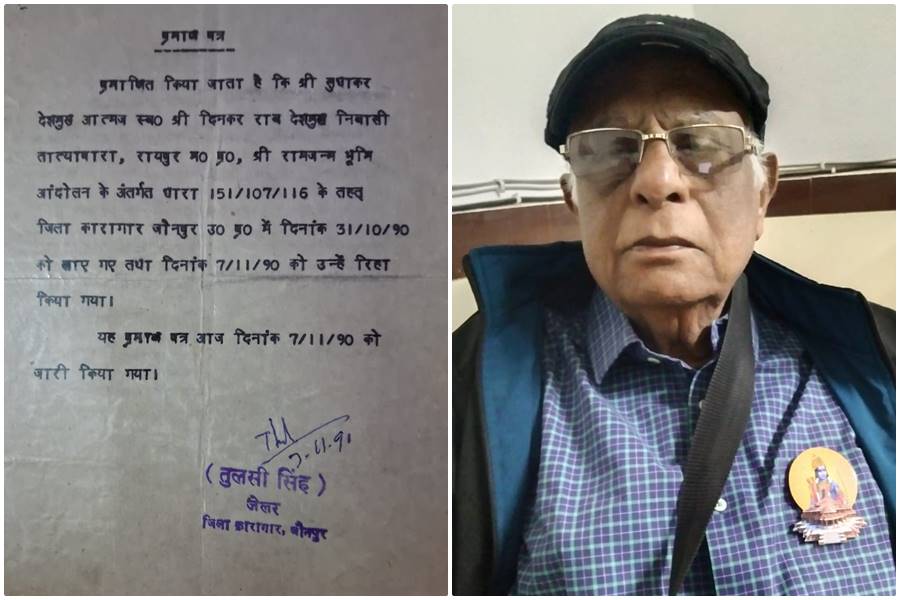 प्रमाण पत्र
प्रमाणित किया जाता है कि श्री सुधाकर
देशमुख आत्मज स्व0 श्री दिनकर राव देशमुख निवासी
तात्यापारा, रायपुर म0 प्र0, श्री रामजन्म भूमि
आंदोलन के अंतर्गत धारा 151/107/116 के तहत्
जिला कारागार जौनपुर उ0 प्र0 में दिनांक 31/10/90
को लाए गए तथा दिनांक 7/11/90 को उन्हें रिहा
किया गया।
यह प्रमाण पत्र आज दिनांक 7/11/90 को
जारी किया गया।
7-11-90
( तुलसी सिंह )
जेलर
जिला कारागार, जौनपुर